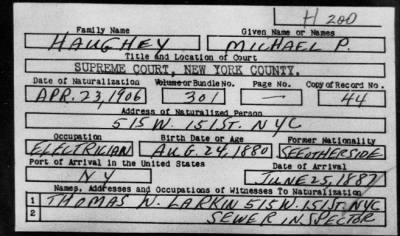 H 200
Family Name Given Name or Names
HAUGHEY MICHAEL P.
Title and Location of Court
SUPREME COURT, NEW YORK COUNTY.
Date of Naturalization Volume or Bundle No. Page No. Copy of Record No.
APR. 23, 1906 301 — 44
Address of Naturalized Person
515 W. 151 ST. NYC
Occupation Birth Date or Age Former Nationality
ELECTRICIAN AUG 24, 1880 SEE OTHER SIDE
Port of Arrival in the United States Date of Arrival
NY JUNE 25, 1887
Names, Addresses and Occupations of Witnesses To Naturalization
1 THOMAS W. LARKIN 515 W. 151 ST. NYC
2 SEWER INSPECTOR